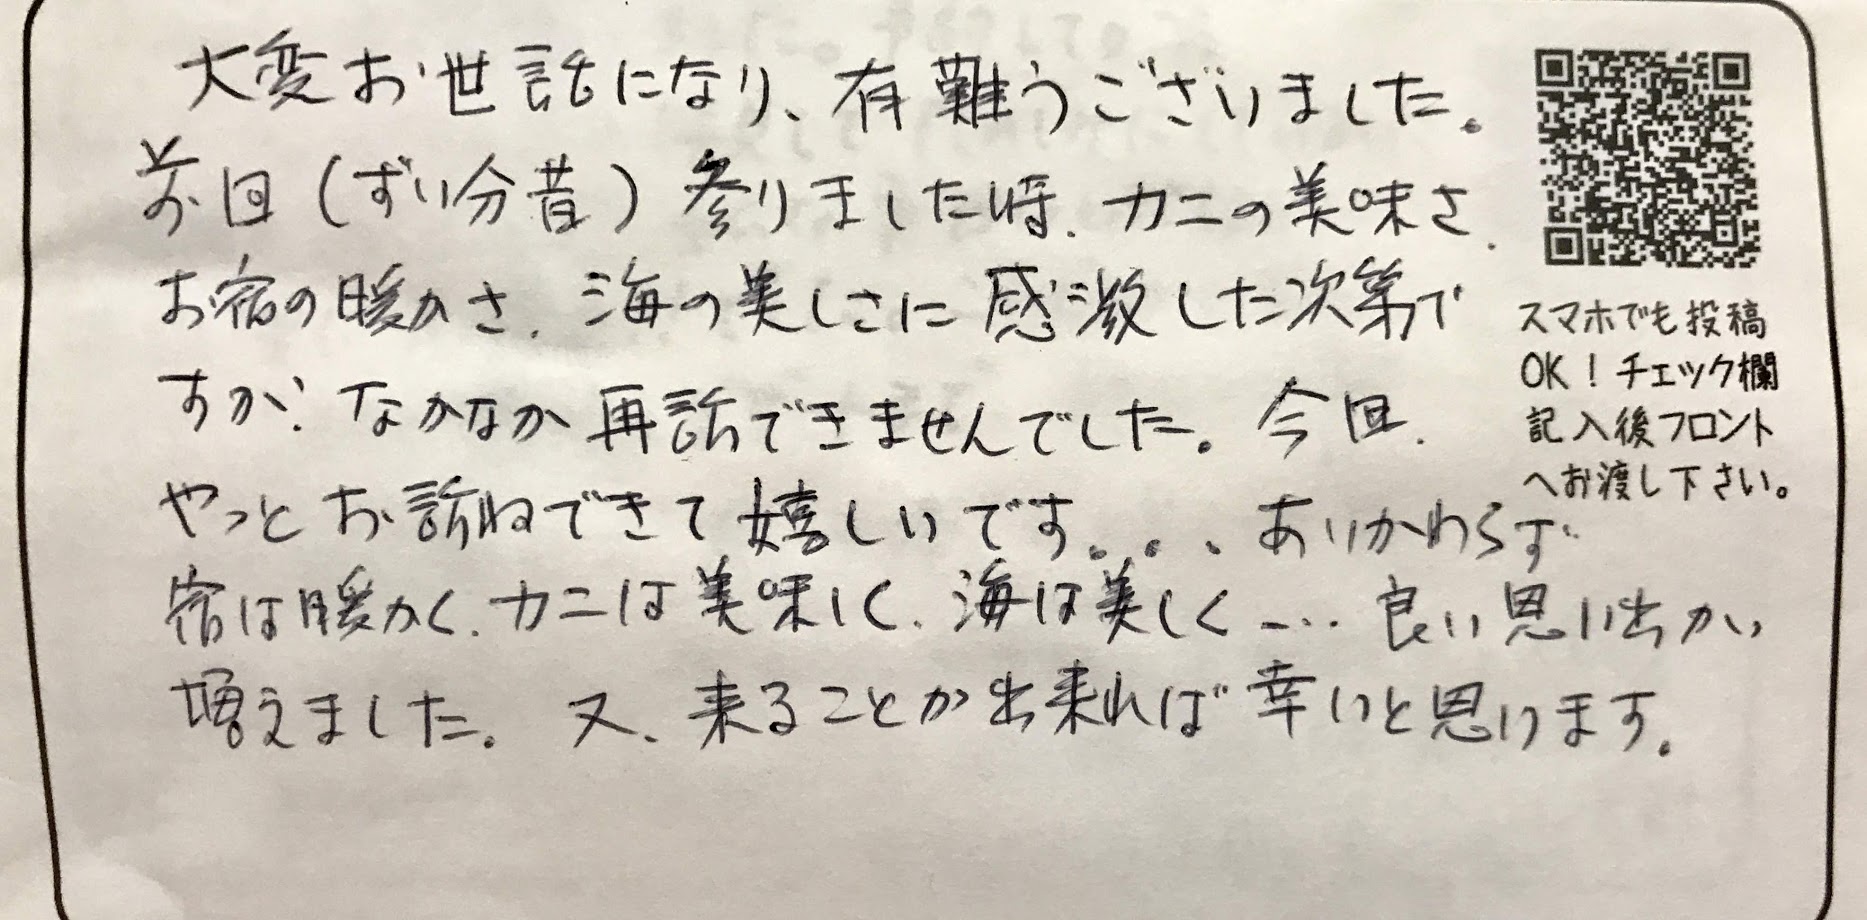 大変お世話になり、有難うございました。
前回（ずい分昔）参りました時、カニの美味さ、
お宿の暖かさ、海の美しさに感激した次第で
すが、なかなか再訪できませんでした。今回、
やっとお訪ねできて嬉しいです。・・・あいかわらず
宿は暖かく、カニは美味しく、海は美しく…良い思い出が
増えました。又、来ることが出来れば幸いと思います。
スマホでも投稿
OK！チェック欄
記入後フロント
へお渡し下さい。